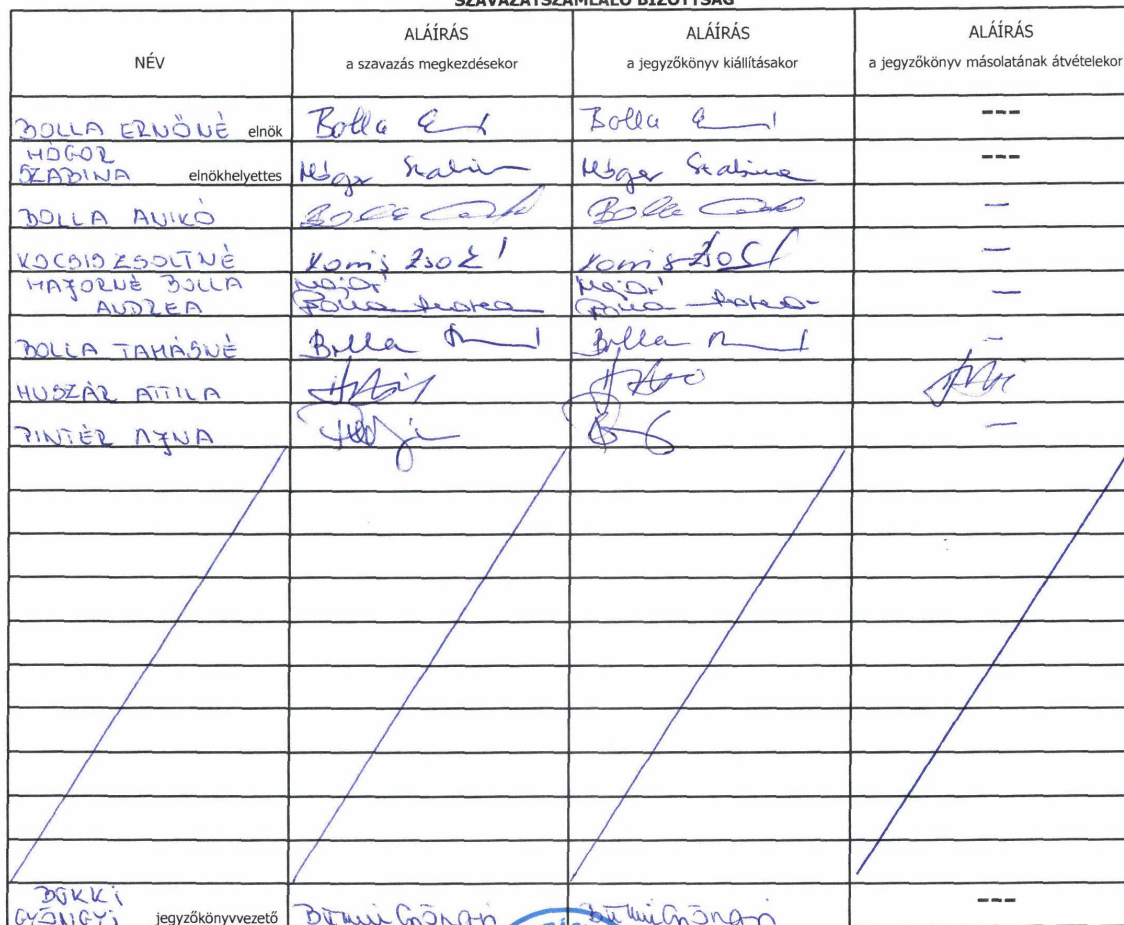 SZAVAZATSZÁMLÁLÓ BIZOTTSÁG
NÉV
ALÁÍRÁS
a szavazás megkezdésekor
ALÁÍRÁS
a jegyzőkönyv kiállításakor
ALÁÍRÁS
a jegyzőkönyv másolatának átvételekor
BOLLA ERNŐNÉ elnök Bolla Bolla ---
MÓGOR
SZABINA elnökhelyettes Mógor Szabina Mógor Szabina ---
BOLLA ANIKÓ Bolla Bolla —
KOCSIS ZSOLTNÉ —
MAJORNÉ BOLLA Major Major
ANDREA Bolla Andrea Bolla Andrea —
BOLLA TAMÁSNÉ Bolla Bolla —
HUSZÁR ATTILA
PINTÉR AJNA —
BÜKKI
GYÖNGYI jegyzőkönyvvezető Bükki Gyöngyi Bükki Gyöngyi ---